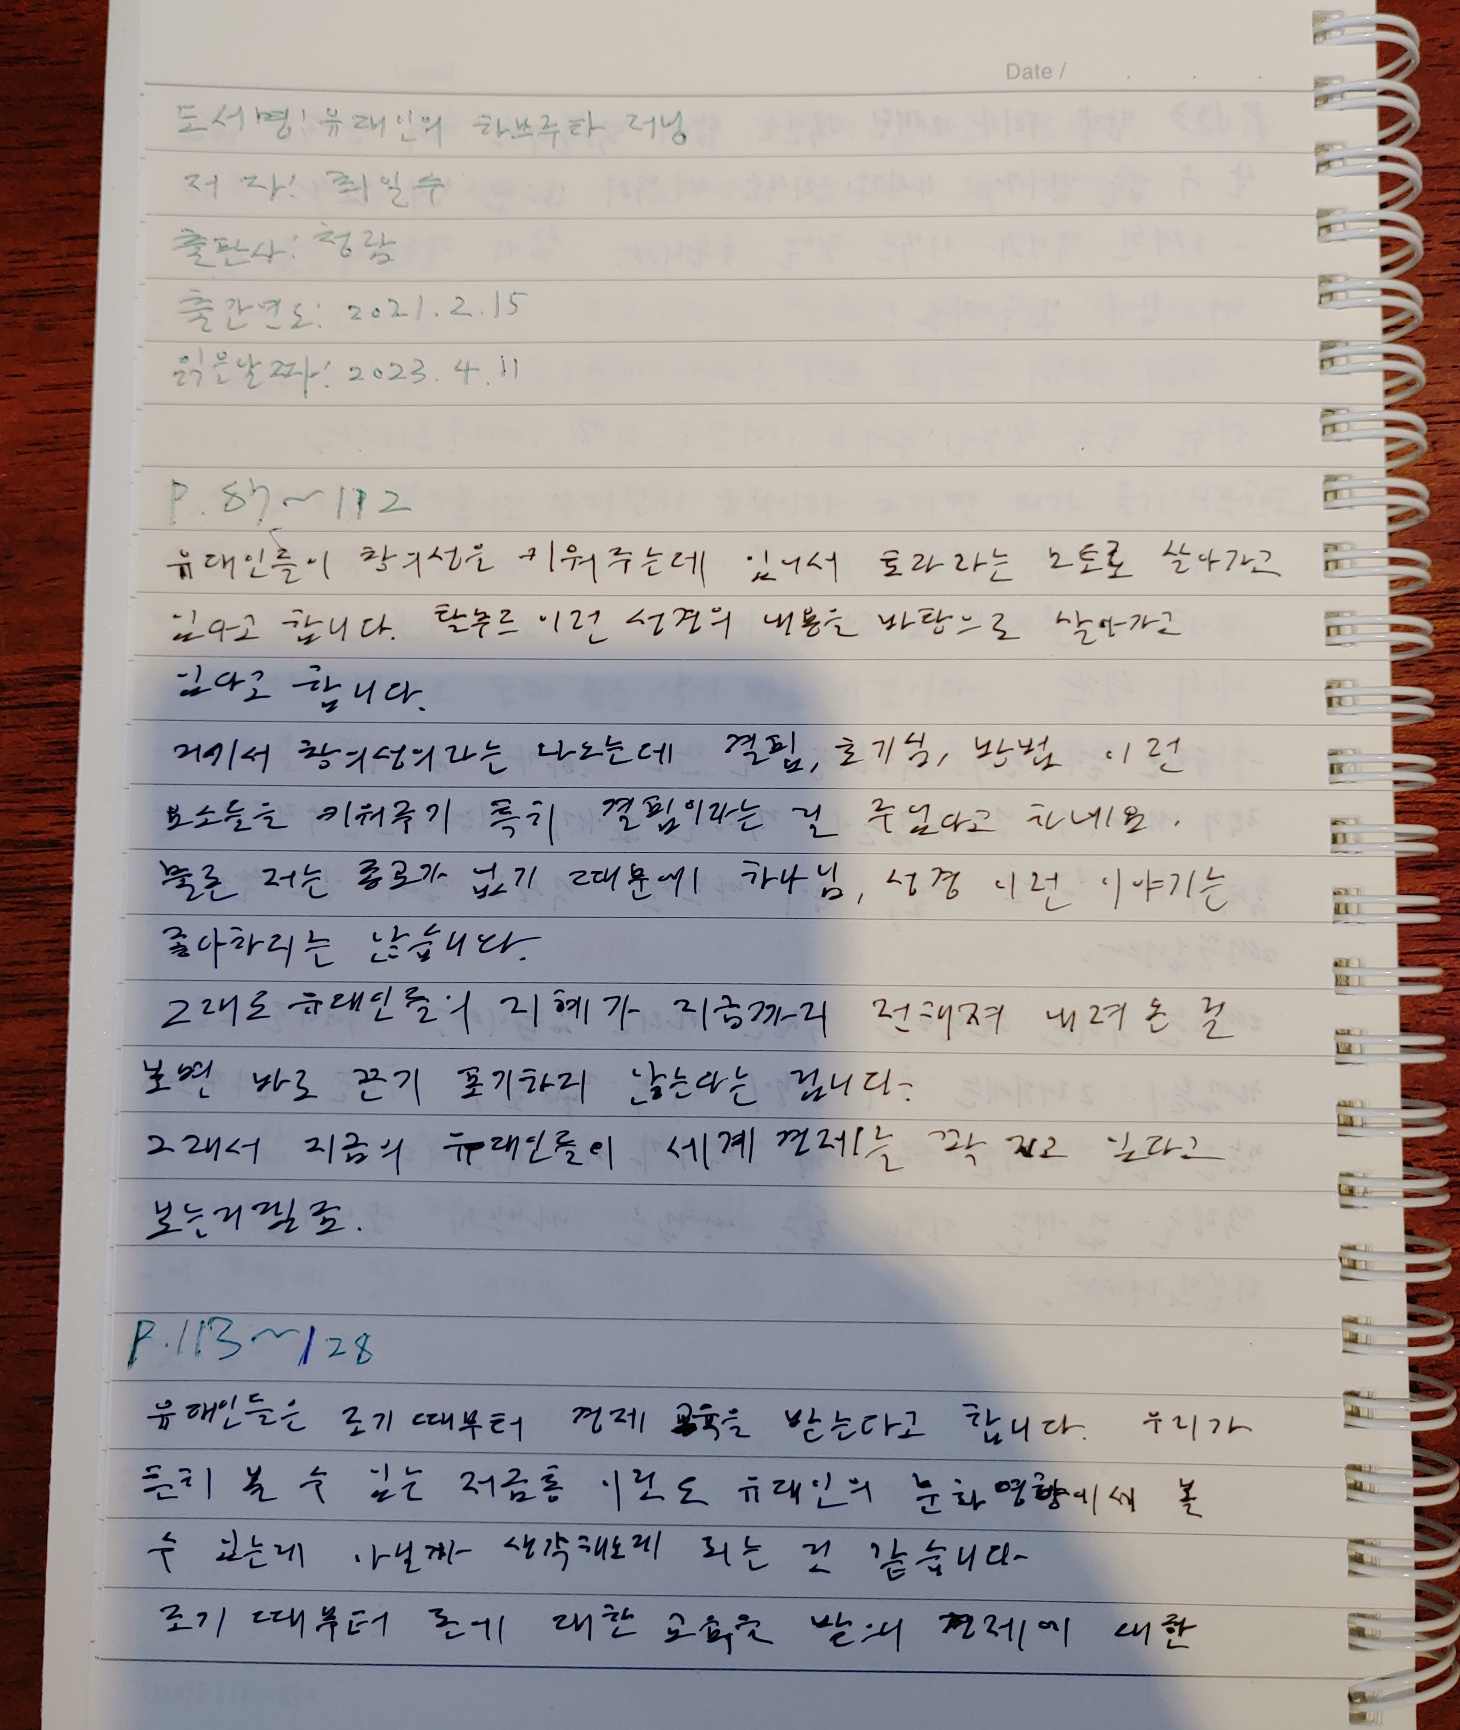 Date /
도서명: 유대인의 하브루타 러닝
저자: 최일수
출판사: 청람
출간연도: 2021.2.15
읽은날짜: 2023.4.11
P. 87~112
유대인들이 창의성을 키워주는데 있어서 토라라는 모토로 살아가고
있다고 합니다. 탈무드 이런 성경의 내용을 바탕으로 살아가고
있다고 합니다.
거기서 창의성이라는 나오는데 결핍, 호기심, 방법 이런
요소들을 키워주기 특히 결핍이라는 걸 주입다고 하네요.
물론 저는 종교가 없기 때문에 하나님, 성경 이런 이야기는
좋아하지는 않습니다.
그래도 유대인들의 지혜가 지금까지 전해져 내려온 걸
보면 바로 끈기 포기하지 않는다는 겁니다.
그래서 지금의 유대인들이 세계 경제를 꽉 쥐고 있다고
보는거겠죠.
P.113~128
유대인들은 조기 때부터 경제 교육을 받는다고 합니다. 우리가
흔히 볼 수 있는 저금통 이런도 유대인의 문화영향에서 볼
수 있는게 아닐까 생각해보게 되는 것 같습니다.
조기 때부터 돈에 대한 교육을 받의 경제에 대한